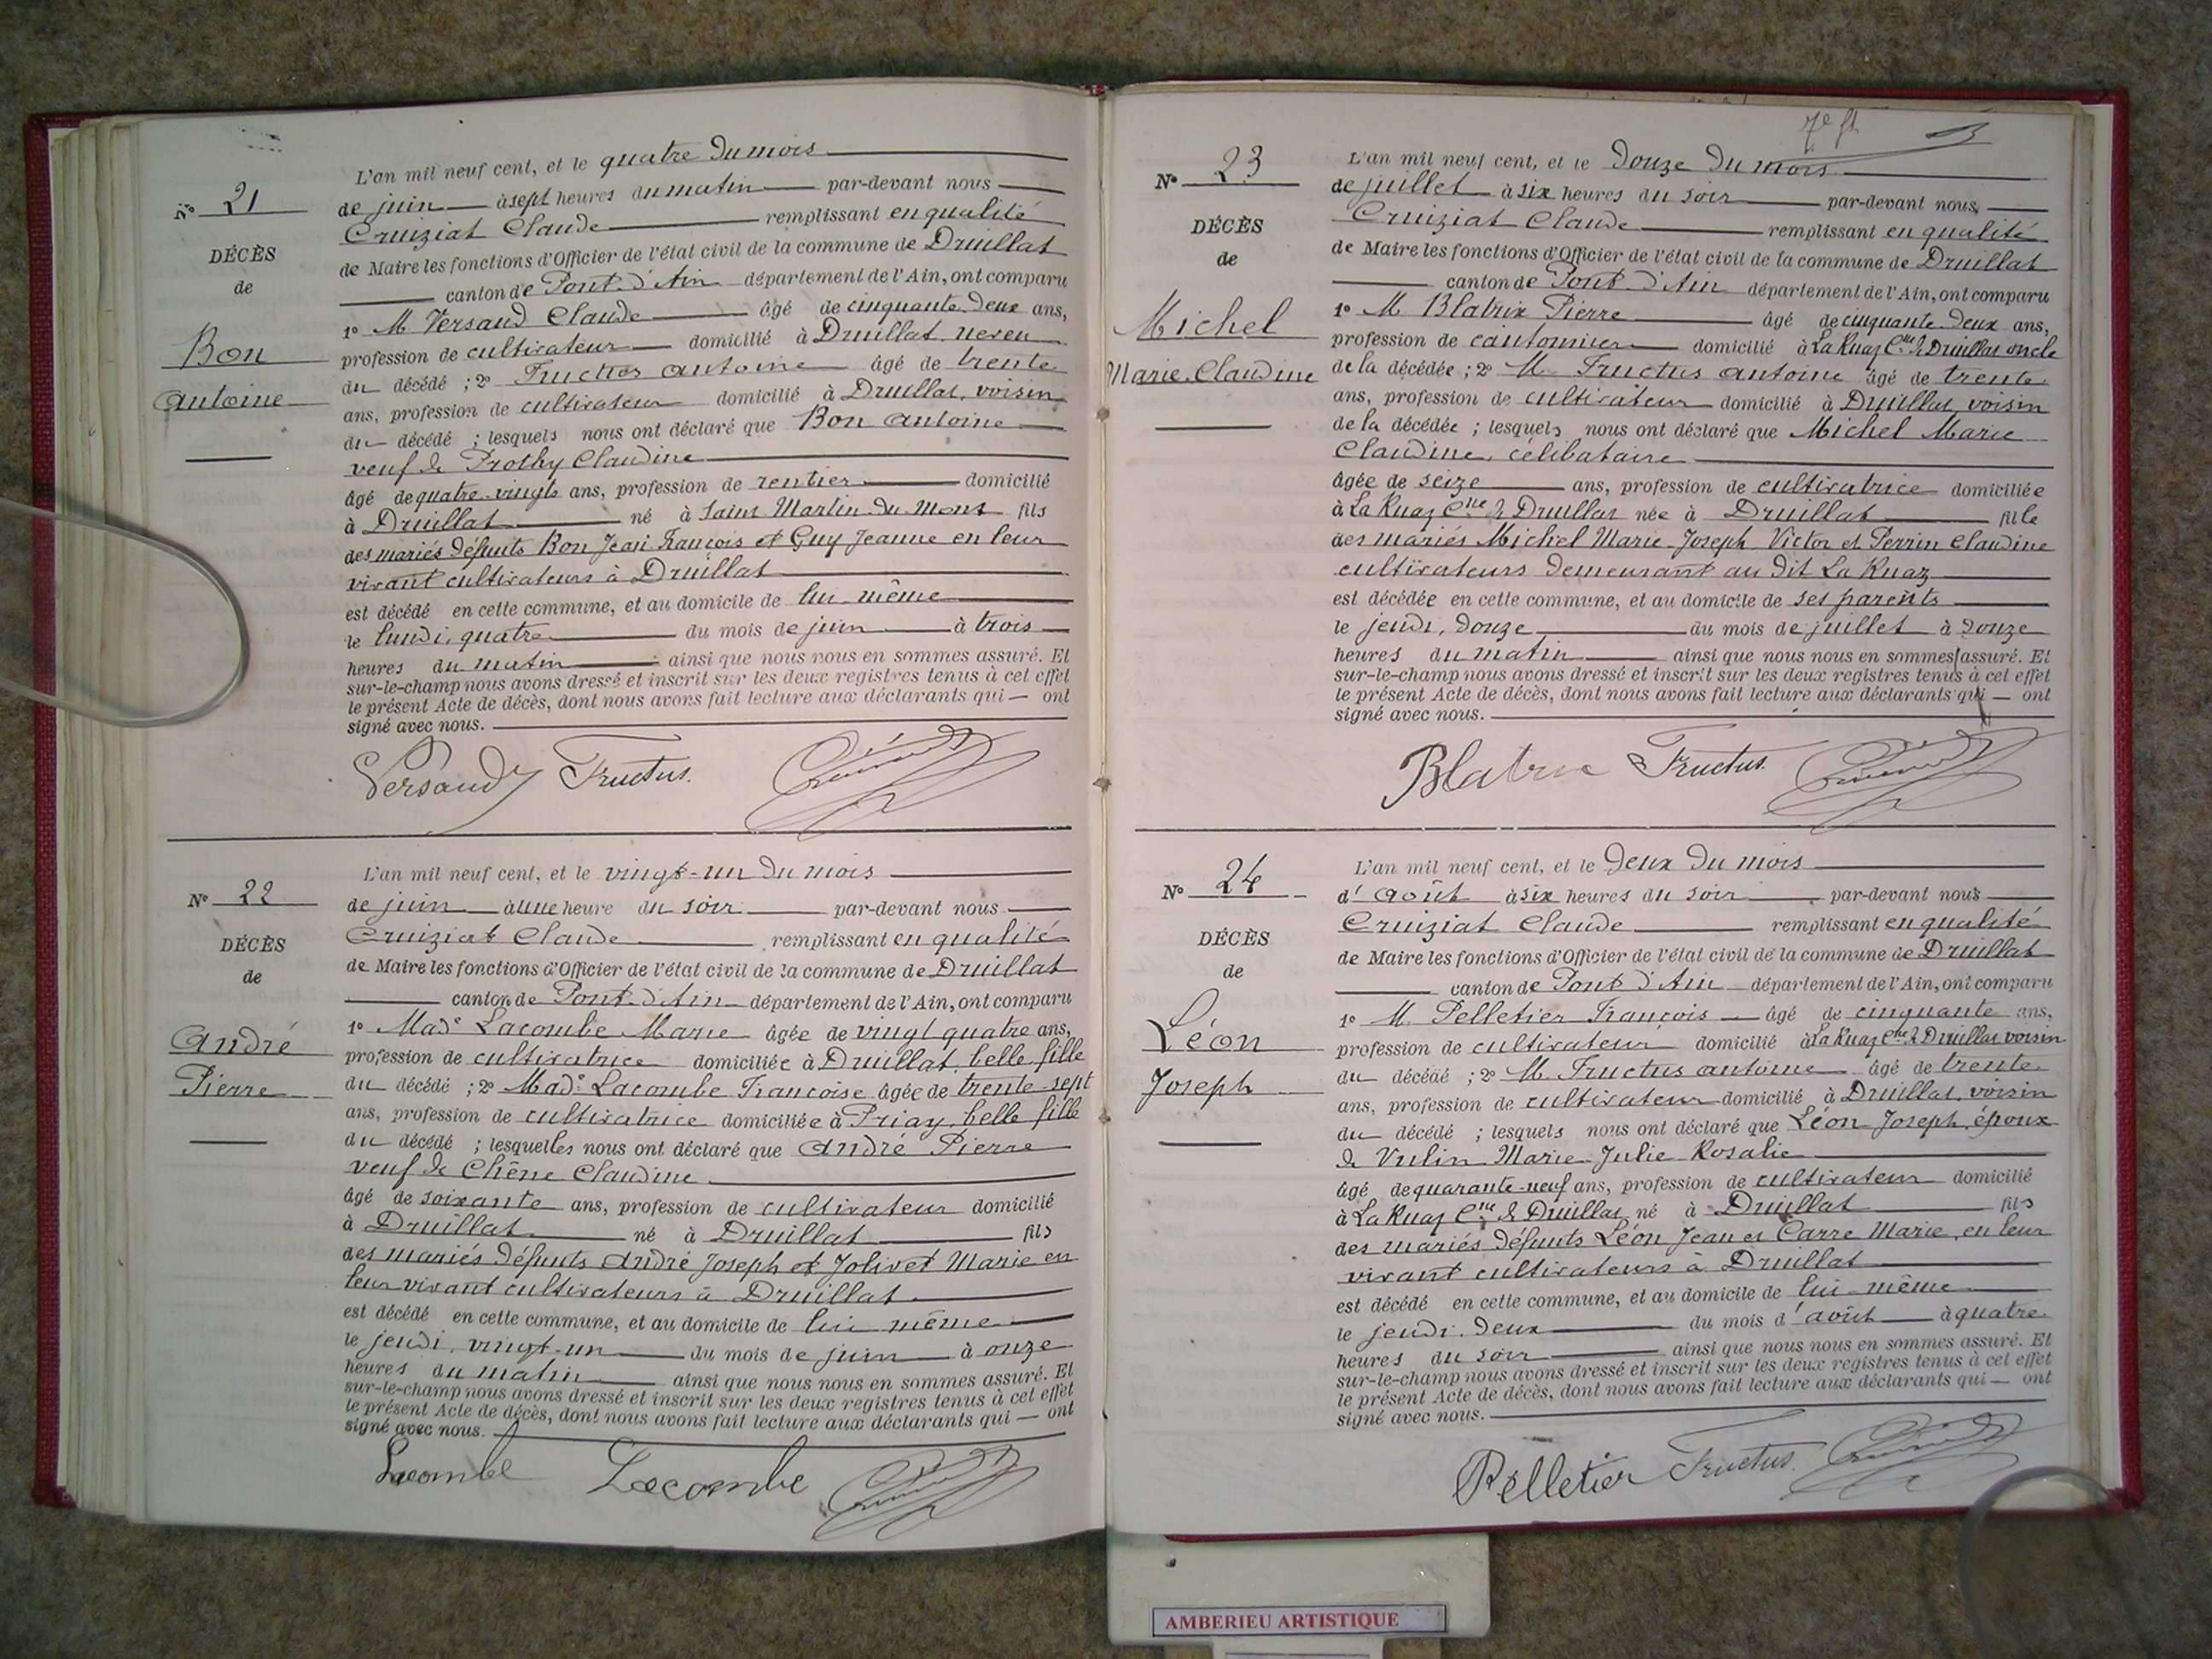 N° 21
DÉCÈS
de
Bon
Antoine
L'an mil neuf cent, et le quatre du mois
de juin à sept heures du matin par-devant nous
Cruiziat Claude remplissant en qualité
de Maire les fonctions d'Officier de l'état civil de la commune de Druillat
canton de Pont-d'Ain département de l'Ain, ont comparu
1° M. Versaud Claude âgé de cinquante-deux ans,
profession de cultivateur domicilié à Druillat, neveu
du décédé ; 2° Fructus Antoine âgé de trente
ans, profession de cultivateur domicilié à Druillat, voisin
du décédé ; lesquels nous ont déclaré que Bon Antoine
veuf de Prothy Claudine
âgé de quatre-vingts ans, profession de rentier domicilié
à Druillat né à Saint Martin-du-Mont fils
des mariés défunts Bon Jean François et Guy Jeanne en leur
vivant cultivateurs à Druillat
est décédé en cette commune, et au domicile de lui-même
le lundi, quatre du mois de juin à trois
heures du matin ainsi que nous nous en sommes assuré. Et
sur-le-champ nous avons dressé et inscrit sur les deux registres tenus à cet effet
le présent Acte de décès, dont nous avons fait lecture aux déclarants qui — ont
signé avec nous.
Versaud Fructus.
N° 22
DÉCÈS
de
André
Pierre
L'an mil neuf cent, et le vingt-un du mois
de juin à une heure du soir par-devant nous
Cruiziat Claude remplissant en qualité
de Maire les fonctions d'Officier de l'état civil de la commune de Druillat
canton de Pont-d'Ain département de l'Ain, ont comparu
1° Made Lacombe Marie âgée de vingt quatre ans,
profession de cultivatrice domiciliée à Druillat, belle fille
du décédé ; 2° Made Lacombe Françoise âgée de trente-sept
ans, profession de cultivatrice domiciliée à Priay, belle fille
du décédé ; lesquelles nous ont déclaré que André Pierre
veuf de Chêne Claudine
âgé de soixante ans, profession de cultivateur domicilié
à Druillat né à Druillat fils
des mariés défunts André Joseph et Jolivet Marie en
leur vivant cultivateurs à Druillat
est décédé en cette commune, et au domicile de lui même
le jeudi, vingt-un du mois de juin à onze
heures du matin ainsi que nous nous en sommes assuré. Et
sur-le-champ nous avons dressé et inscrit sur les deux registres tenus à cet effet
le présent Acte de décès, dont nous avons fait lecture aux déclarants qui — ont
signé avec nous.
Lacombe Lacombe
N° 23
DÉCÈS
de
Michel
Marie-Claudine
L'an mil neuf cent, et le douze du mois
de juillet à six heures du soir par-devant nous,
Cruiziat Claude remplissant en qualité
de Maire les fonctions d'Officier de l'état civil de la commune de Druillat
canton de Pont-d'Ain département de l'Ain, ont comparu
1° M. Blatrix Pierre âgé de cinquante-deux ans,
profession de cantonnier domicilié à La Ruaz Cne de Druillat oncle
de la décédée ; 2° M. Fructus Antoine âgé de trente
ans, profession de cultivateur domicilié à Druillat, voisin
de la décédée ; lesquels nous ont déclaré que Michel Marie
Claudine, célibataire
âgée de seize ans, profession de cultivatrice domiciliée
à La Ruaz Cne de Druillat née à Druillat fille
des mariés Michel Marie-Joseph Victor et Perrin Claudine
cultivateurs demeurant au dit La Ruaz
est décédée en cette commune, et au domicile de ses parents
le jeudi, douze du mois de juillet à douze
heures du matin ainsi que nous nous en sommes assuré. Et
sur-le-champ nous avons dressé et inscrit sur les deux registres tenus à cet effet
le présent Acte de décès, dont nous avons fait lecture aux déclarants qui — ont
signé avec nous.
Blatrix Fructus.
N° 24
DÉCÈS
de
Léon
Joseph
L'an mil neuf cent, et le deux du mois
d'août à six heures du soir par-devant nous
Cruiziat Claude remplissant en qualité
de Maire les fonctions d'Officier de l'état civil de la commune de Druillat
canton de Pont d'Ain département de l'Ain, ont comparu
1° M. Pelletier François âgé de cinquante ans,
profession de cultivateur domicilié à La Ruaz Cne de Druillat voisin
du décédé ; 2° M. Fructus Antoine âgé de trente
ans, profession de cultivateur domicilié à Druillat, voisin
du décédé ; lesquels nous ont déclaré que Léon Joseph, époux
de Vulin Marie-Julie-Rosalie
âgé de quarante-neuf ans, profession de cultivateur domicilié
à La Ruaz Cne de Druillat, né à Druillat fils
des mariés défunts Léon Jean et Carre Marie, en leur
vivant cultivateurs à Druillat
est décédé en cette commune, et au domicile de lui-même
le jeudi, deux du mois d'août à quatre
heures du soir ainsi que nous nous en sommes assuré. Et
sur-le-champ nous avons dressé et inscrit sur les deux registres tenus à cet effet
le présent Acte de décès, dont nous avons fait lecture aux déclarants qui — ont
signé avec nous.
Pelletier Fructus.
AMBERIEU ARTISTIQUE